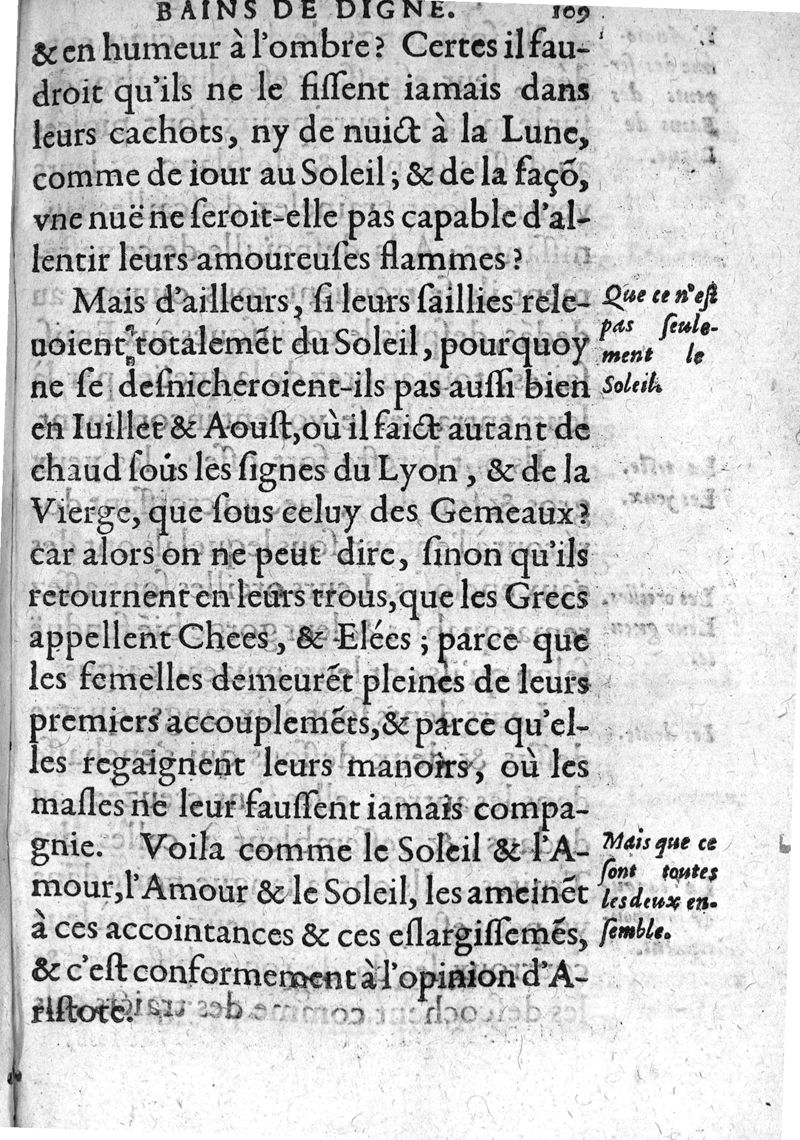 BAINS DE DIGNE. 109
& en humeur à l'ombre? Certes il fau-
droit qu'ils ne le fiſſent iamais dans
leurs cachots, ny de nuict à la Lune,
comme de iour au Soleil; & de la façõ,
vne nuë ne ſeroit-elle pas capable d'al-
lentir leurs amoureuſes flammes?
Mais d'ailleurs, ſi leurs ſaillies rele-
uoient totalemẽt du Soleil, pourquoy
ne ſe deſnicheroient-ils pas auſſi bien
en Iuillet & Aouſt, où il faict autant de
chaud ſous les ſignes du Lyon, & de la
Vierge, que ſous celuy des Gemeaux?
car alors on ne peut dire, ſinon qu'ils
retournent en leurs trous, que les Grecs
appellent Chees, & Elées; parce que
les femelles demeurẽt pleines de leurs
premiers accouplemẽts, & parce qu'el-
les regaignent leurs manoirs, où les
maſles ne leur fauſſent iamais compa-
gnie. Voila comme le Soleil & l'A-
mour, l'Amour & le Soleil, les ameinẽt
à ces accointances & ces eſlargiſſemẽs,
& c'eſt conformement à l'opinion d'A-
riſtote.
Que ce n'eſt
pas ſeule-
ment le
Soleil.
Mais que ce
ſont toutes
les deux en-
ſemble.